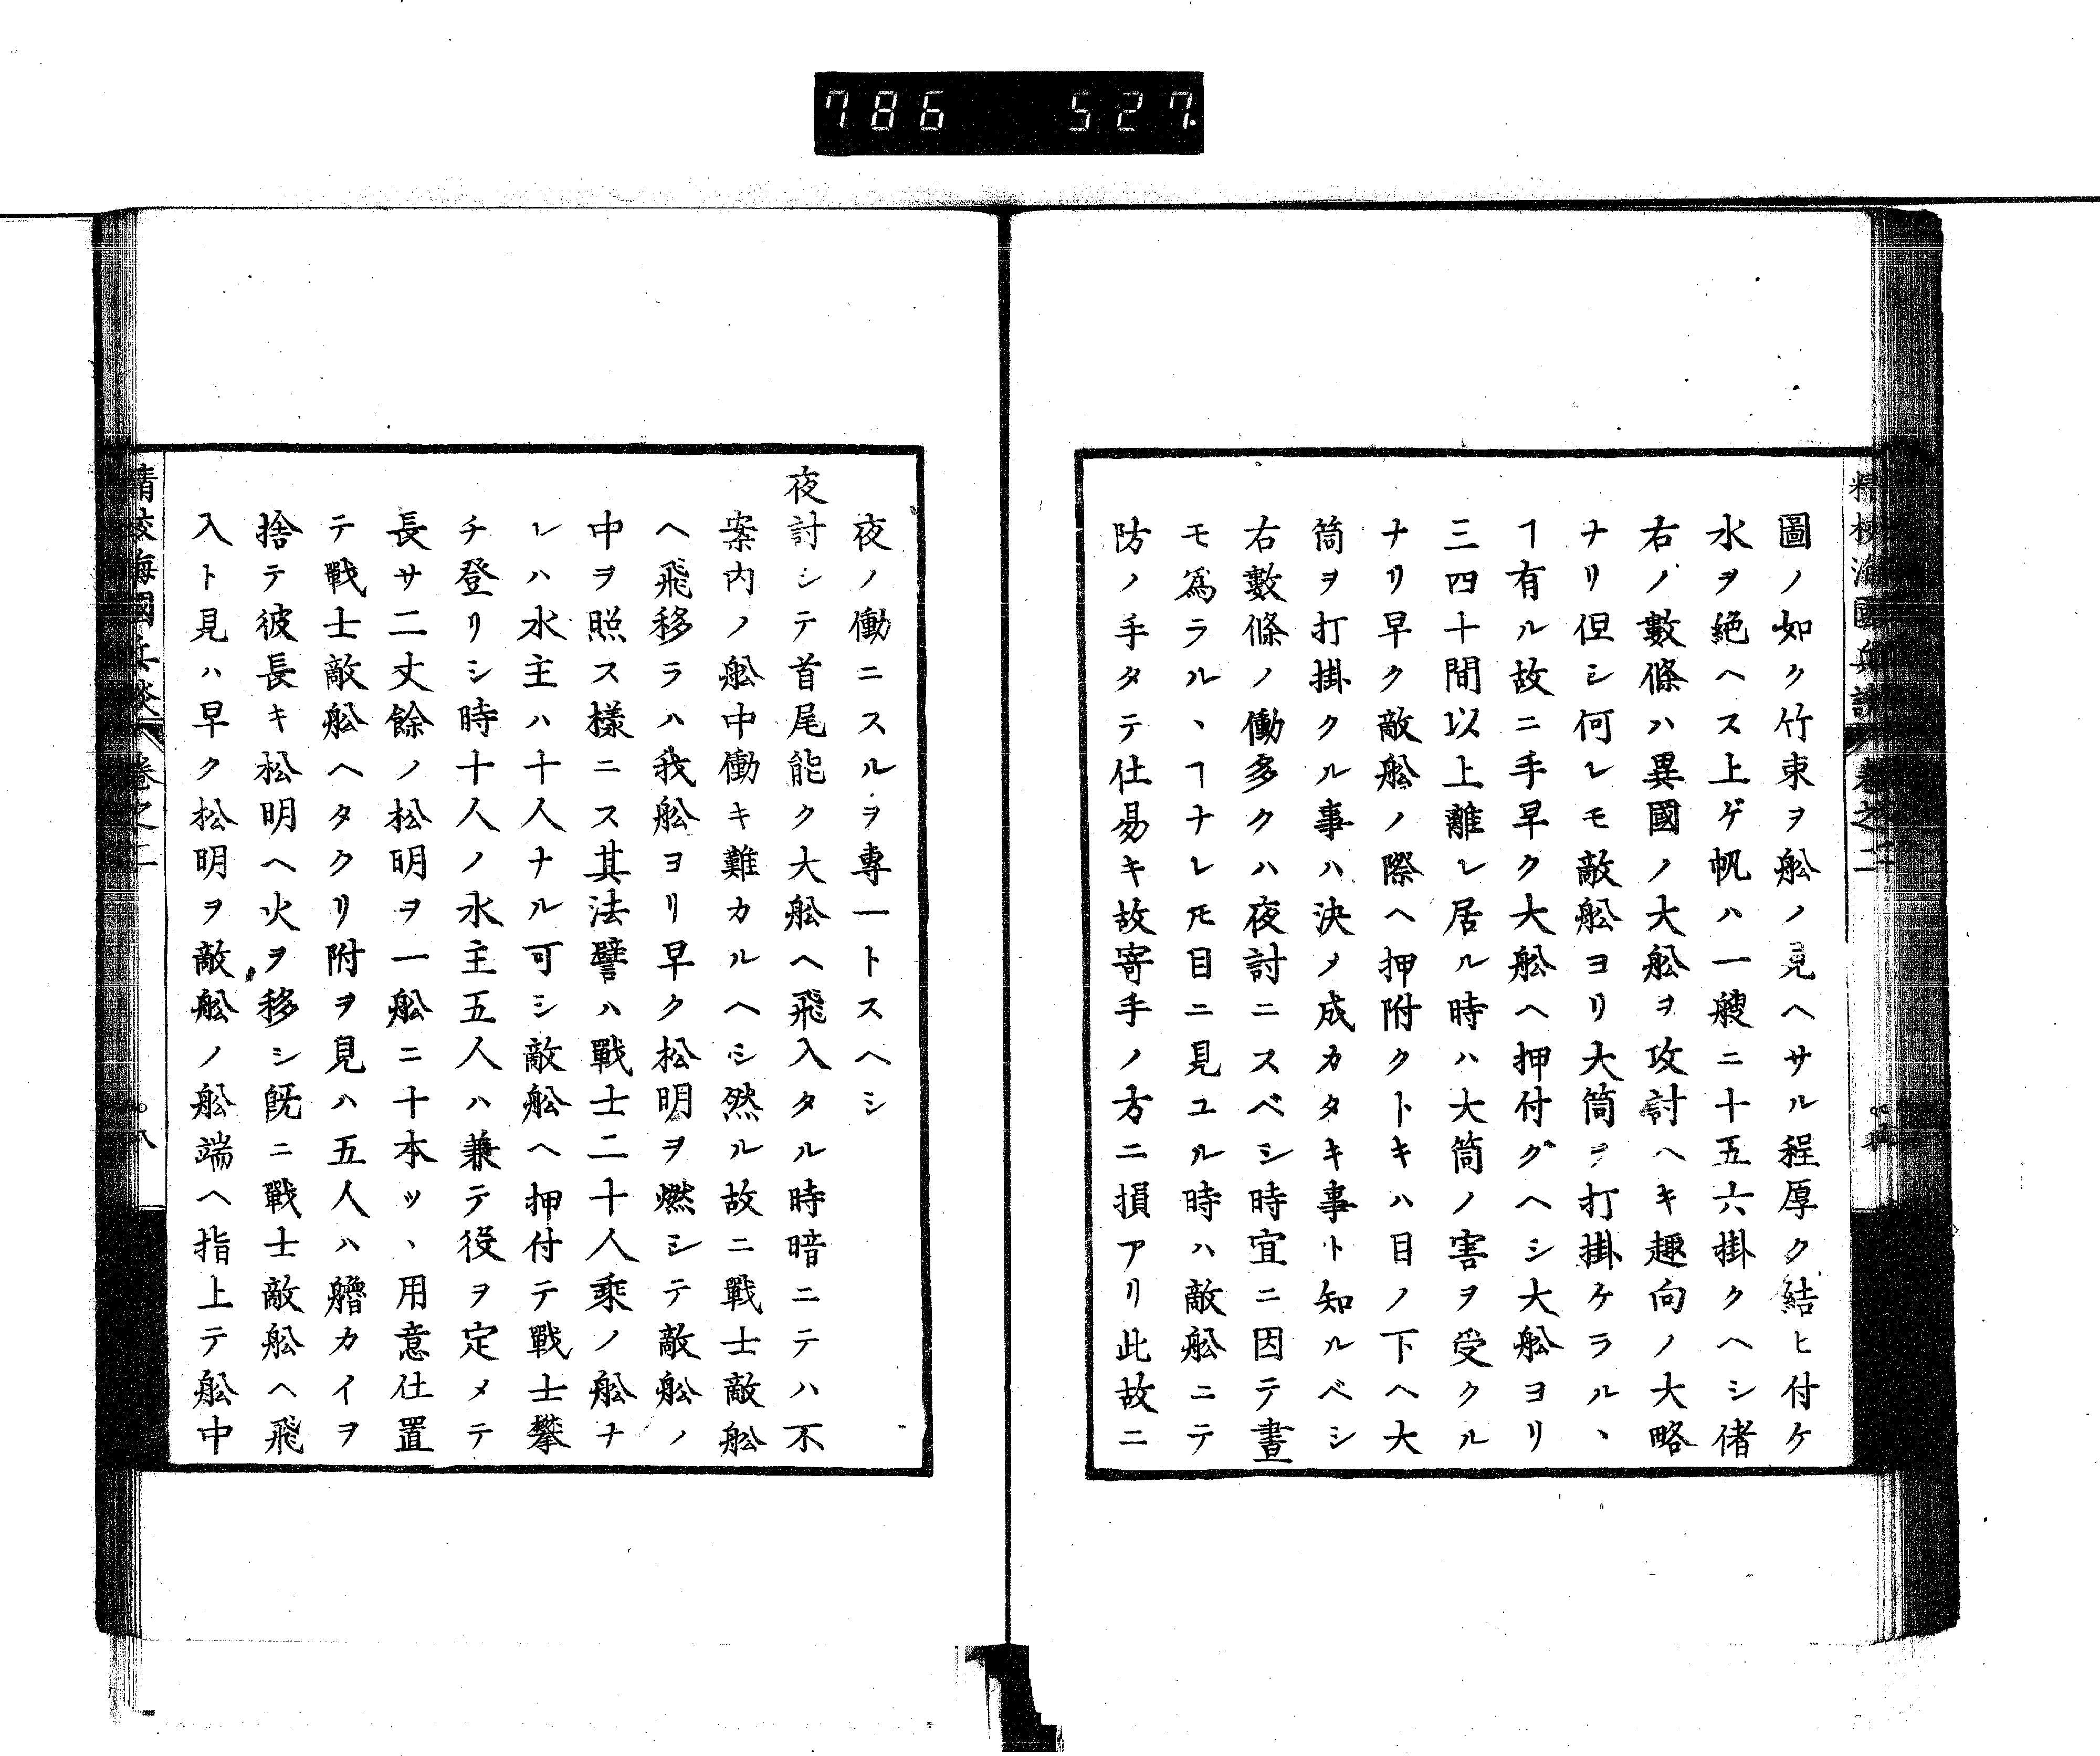 786 527.
精校海國兵談 卷之二
圖ノ如ク竹束ヲ舩ノ見ヘサル程厚ク結ヒ付ケ
水ヲ絶ヘス上ゲ帆ハ一艘ニ十五六掛クヘシ偖
右ノ數條ハ異國ノ大舩ヲ攻討ヘキ趣向ノ大略
ナリ但シ何レモ敵舩ヨリ大筒ヲ打掛ケラル丶
ヿ有ル故ニ手早ク大舩ヘ押付グヘシ大舩ヨリ
三四十間以上離レ居ル時ハ大筒ノ害ヲ受クル
ナリ早ク敵舩ノ際ヘ押附クトキハ目ノ下ヘ大
筒ヲ打掛クル事ハ決メ成カタキ事ト知ルベシ
右數條ノ働多クハ夜討ニスベシ時宜ニ因テ晝
モ爲ラル丶ヿナレ𪜈目ニ見ユル時ハ敵舩ニテ
防ノ手タテ仕易キ故寄手ノ方ニ損アリ此故ニ
夜ノ働ニスルヲ專一トスヘシ
夜討シテ首尾能ク大舩ヘ飛入タル時暗ニテハ不
案内ノ舩中働キ難カルヘシ然ル故ニ戰士敵舩
ヘ飛移ラハ我舩ヨリ早ク松明ヲ燃シテ敵舩ノ
中ヲ照ス樣ニス其法譬ハ戰士二十人乘ノ舩ナ
レハ水主ハ十人ナル可シ敵舩ヘ押付テ戰士攀
チ登リシ時十人ノ水主五人ハ兼テ役ヲ定メテ
長サ二丈餘ノ松明ヲ一舩ニ十本ッ丶用意仕置
テ戰士敵舩ヘタクリ附ヲ見ハ五人ハ艪カイヲ
捨テ彼長キ松明ヘ火ヲ移シ旣ニ戰士敵舩ヘ飛
入ト見ハ早ク松明ヲ敵舩ノ舩端ヘ指上テ舩中
精校海國兵談 卷之二 八